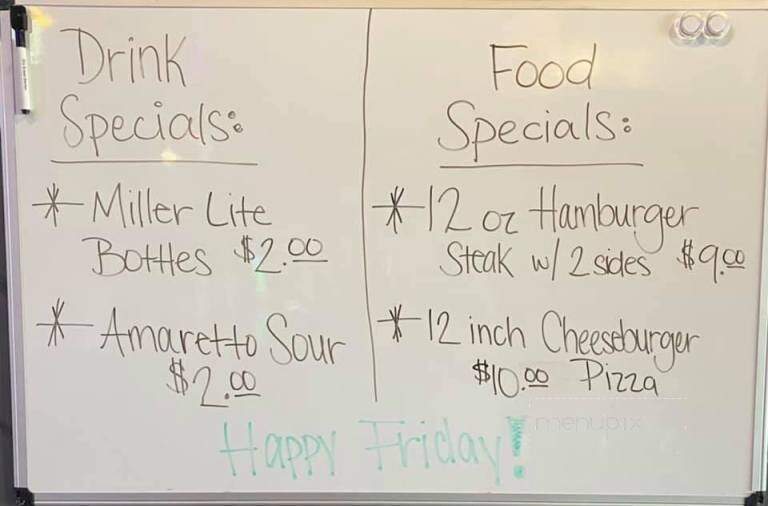 Drink
Specials:
* Miller Lite
Bottles $2.00
* Amaretto Sour
$2.00
Food
Specials:
* 12 oz Hamburger
Steak w/ 2 sides $9.00
* 12 inch Cheeseburger
$10.00 Pizza
Happy Friday!
menupix